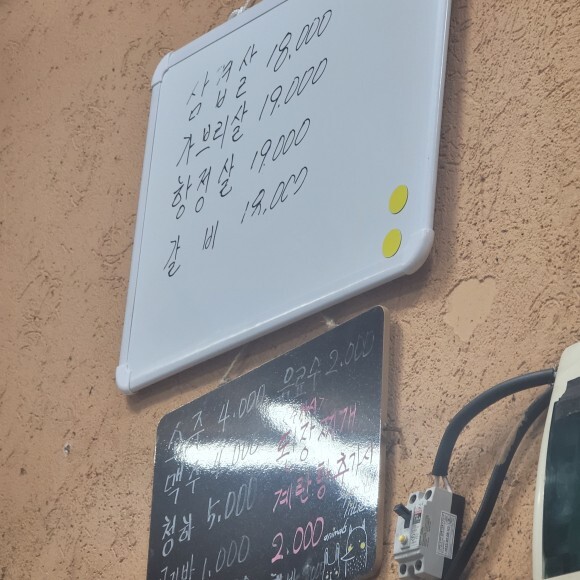 삼겹살 18.000
가브리살 19.000
항정살 19.000
갈 비 18,000
소주 4.000 음료수 2.000
맥주 4.000 된장찌개
청하 5.000 계란찜 추가시
1.000 2.000